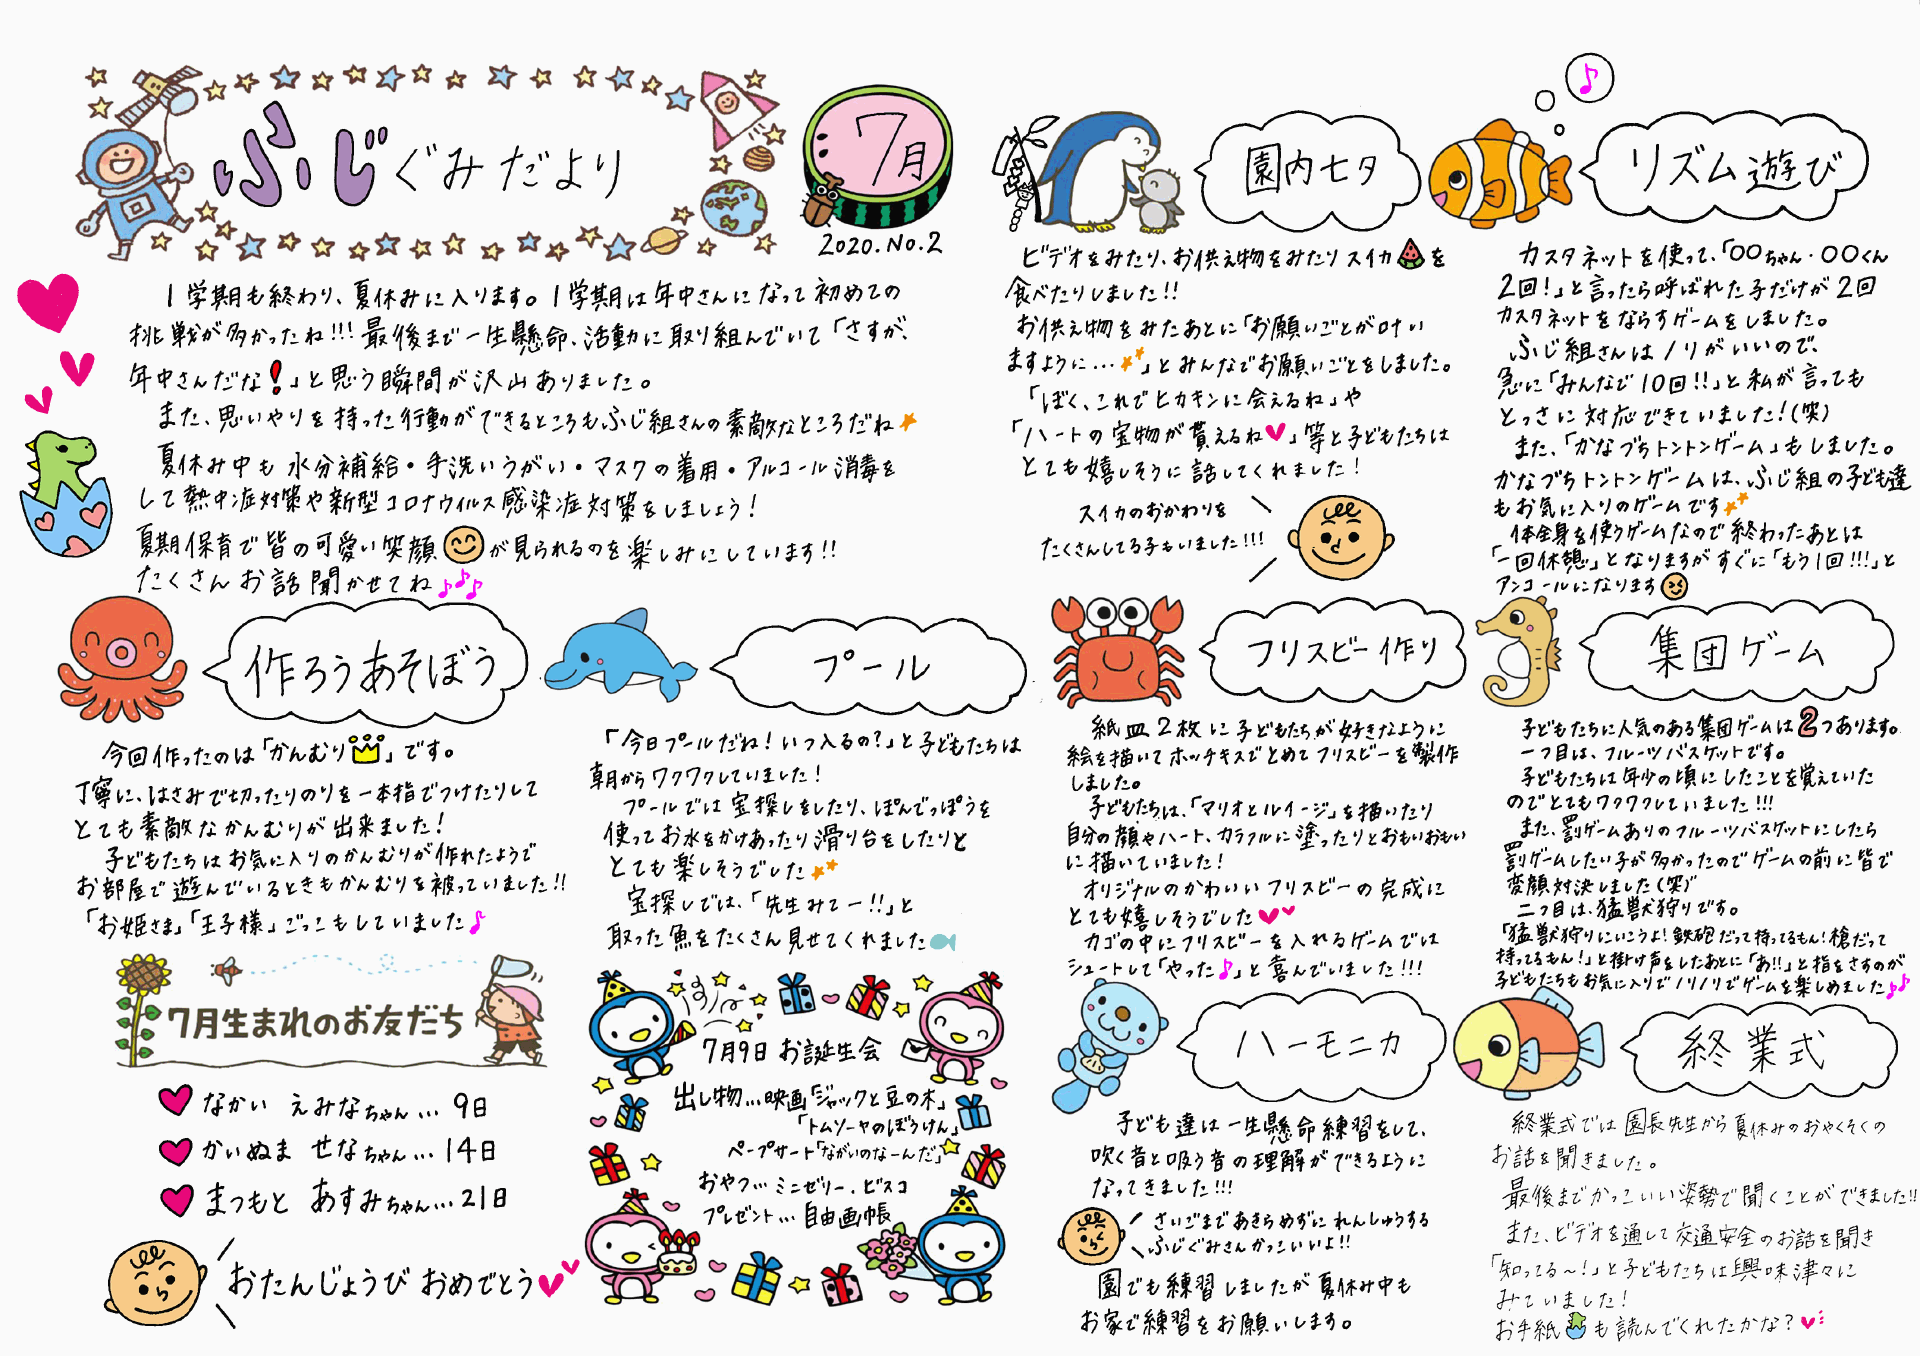 ふじぐみだより
7月
2020.No.2
1学期も終わり、夏休みに入ります。1学期は年中さんになって初めての
挑戦が多かったね!!!最後まで一生懸命、活動に取り組んでいて「さすが、
年中さんだな!」と思う瞬間が沢山ありました。
また、思いやりを持った行動ができるところもふじ組さんの素敵なところだね
夏休み中も水分補給・手洗いうがい・マスクの着用・アルコール消毒を
して熱中症対策や新型コロナウィルス感染症対策をしましょう!
夏期保育で皆の可愛い笑顔が見られるのを楽しみにしています!!
たくさんお話聞かせてね♪♪♪
作ろうあそぼう
今回作ったのは「かんむり」です。
丁寧に、はさみで切ったりのりを一本指でつけたりして
とても素敵なかんむりが出来ました!
子どもたちはお気に入りのかんむりが作れたようで
お部屋で遊んでいるときもかんむりを被っていました!!
「お姫さま」「王子様」ごっこもしていました♪
プール
「今日プールだね!いつ入るの?」と子どもたちは
朝からワクワクしていました!
プールでは宝探しをしたり、ぽんでっぽうを
使ってお水をかけあったり滑り台をしたりと
とても楽しそうでした
宝探しでは、「先生みてー!!」と
取った魚をたくさん見せてくれました
7月生まれのお友だち
なかい えみなちゃん…9日
かいぬま せなちゃん…14日
まつもと あすみちゃん…21日
おたんじょうび おめでとう
7月9日 お誕生会
出し物…映画「ジャックと豆の木」
「トムソーヤのぼうけん」
ペープサート「ながいのなーんだ」
おやつ…ミニゼリー、ビスコ
プレゼント…自由画帳
園内七夕
ビデオをみたり、お供え物をみたりスイカを
食べたりしました!!
お供え物をみたあとに「お願いごとが叶い
ますように…」とみんなでお願いごとをしました。
「ぼく、これでヒカキンに会えるね」や
「ハートの宝物が貰えるね♥」等と子どもたちは
とても嬉しそうに話してくれました!
スイカのおかわりを
たくさんしてる子もいました!!!
リズム遊び
カスタネットを使って、「〇〇ちゃん・〇〇くん
2回!」と言ったら呼ばれた子だけが2回
カスタネットをならすゲームをしました。
ふじ組さんはノリがいいので、
急に「みんなで10回!!」と私が言っても
とっさに対応できていました!(笑)
また、「かなづちトントンゲーム」もしました。
かなづちトントンゲームは、ふじ組の子ども達
もお気に入りのゲームです
体全身を使うゲームなので終わったあとは
「一回休憩」となりますがすぐに「もう1回!!!」と
アンコールになります
フリスビー作り
紙皿2枚に子どもたちが好きなように
絵を描いてホッチキスでとめてフリスビーを製作
しました。
子どもたちは、「マリオとルイージ」を描いたり
自分の顔やハート、カラフルに塗ったりとおもいおもい
に描いていました!
オリジナルのかわいいフリスビーの完成に
とても嬉しそうでした♥♥
カゴの中にフリスビーを入れるゲームでは
シュートして「やった♪」と喜んでいました!!!
集団ゲーム
子どもたちに人気のある集団ゲームは2つあります。
一つ目は、フルーツバスケットです。
子どもたちは年少の頃にしたことを覚えていた
のでとてもワクワクしていました!!!
また、罰ゲームありのフルーツバスケットにしたら
罰ゲームしたい子が多かったのでゲームの前に皆で
変顔対決しました(笑)
二つ目は、猛獣狩りです。
「猛獣狩りにいこうよ!鉄砲だって持ってるもん!槍だって
持ってるもん!」と掛け声をしたあとに「あ!!」と指をさすのが
子どもたちもお気に入りでノリノリでゲームを楽しめました♪♪
ハーモニカ
子ども達は一生懸命練習をして、
吹く音と吸う音の理解ができるように
なってきました!!!
さいごまであきらめずにれんしゅうする
ふじぐみさんかっこいいよ!!
園でも練習しましたが夏休み中も
お家で練習をお願いします。
終業式
終業式では園長先生から夏休みのおやくそくの
お話を聞きました。
最後までかっこいい姿勢で聞くことができました!!
また、ビデオを通して交通安全のお話を聞き
「知ってる〜!」と子どもたちは興味津々に
みていました!
お手紙も読んでくれたかな?♥